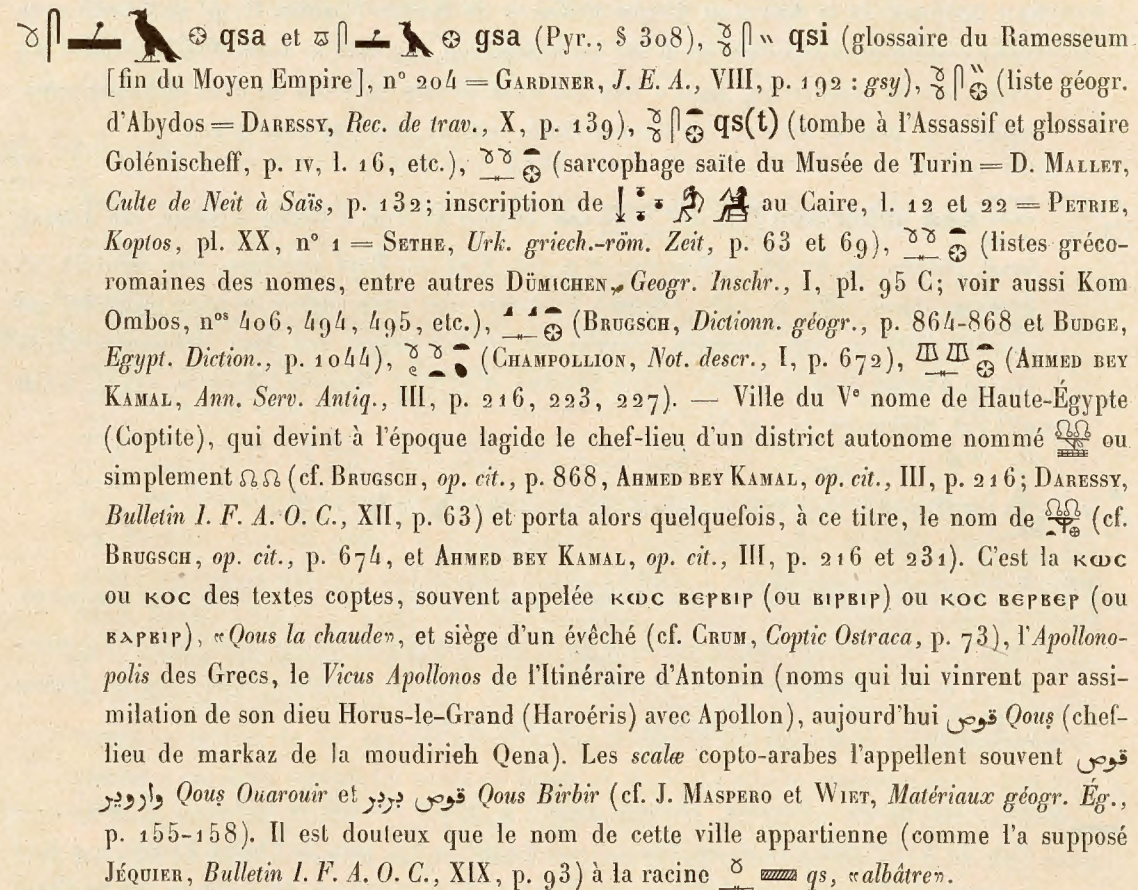 qsa et gsa (Pyr., § 308), qsi (glossaire du Ramesseum
[fin du Moyen Empire], n° 204 = GARDINER, J. E. A., VIII, p. 192 : gsy), (liste géogr.
d'Abydos = DARESSY, Rec. de trav., X, p. 139), qs(t) (tombe à l'Assassif et glossaire
Golénischeff, p. IV, l. 16, etc.), (sarcophage saïte du Musée de Turin = D. MALLET,
Culte de Neit à Saïs, p. 132; inscription de au Caire, l. 12 et 22 = PETRIE,
Koptos, pl. XX, n° 1 = SETHE, Urk. griech.-röm. Zeit, p. 63 et 69), (listes gréco-
romaines des nomes, entre autres DÜMICHEN, Geogr. Inschr., I, pl. 95 C; voir aussi Kom
Ombos, nos 406, 494, 495, etc.), (BRUGSCH, Dictionn. géogr., p. 864-868 et BUDGE,
Egypt. Diction., p. 1044), (CHAMPOLLION, Not. descr., I, p. 672), (AHMED BEY
KAMAL, Ann. Serv. Antiq., III, p. 216, 223, 227). — Ville du Ve nome de Haute-Égypte
(Coptite), qui devint à l'époque lagide le chef-lieu d'un district autonome nommé ou
simplement (cf. BRUGSCH, op. cit., p. 868, AHMED BEY KAMAL, op. cit., III, p. 216; DARESSY,
Bulletin I. F. A. O. C., XII, p. 63) et porta alors quelquefois, à ce titre, le nom de (cf.
BRUGSCH, op. cit., p. 674, et AHMED BEY KAMAL, op. cit., III, p. 216 et 231). C'est la ⲕⲱⲥ
ou ⲕⲟⲥ des textes coptes, souvent appelée ⲕⲱⲥ ⲃⲉⲣⲃⲓⲣ (ou ⲃⲓⲣⲃⲓⲣ) ou ⲕⲟⲥ ⲃⲉⲣⲃⲉⲣ (ou
ⲃⲁⲣⲃⲓⲣ), «Qous la chaude», et siège d'un évêché (cf. CRUM, Coptic Ostraca, p. 73), l'Apollono-
polis des Grecs, le Vicus Apollonos de l'Itinéraire d'Antonin (noms qui lui vinrent par assi-
milation de son dieu Horus-le-Grand (Haroéris) avec Apollon), aujourd'hui قوص Qouṣ (chef-
lieu de markaz de la moudirieh Qena). Les scalæ copto-arabes l'appellent souvent قوص
وارویر Qouṣ Ouarouir et قوص بربر Qouṣ Birbir (cf. J. MASPERO et WIET, Matériaux géogr. Ég.,
p. 155-158). Il est douteux que le nom de cette ville appartienne (comme l'a supposé
JÉQUIER, Bulletin I. F. A. O. C., XIX, p. 93) à la racine qs, «albâtre».